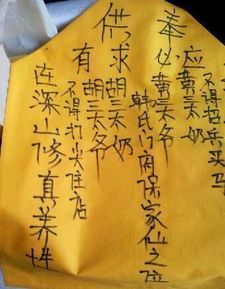 供奉
有求必应
在深山修真养性
不得打尖住店
胡三太爷
胡三太奶
韩氏门府保家仙之位
黄三太爷
黄三太奶
不得招兵买马